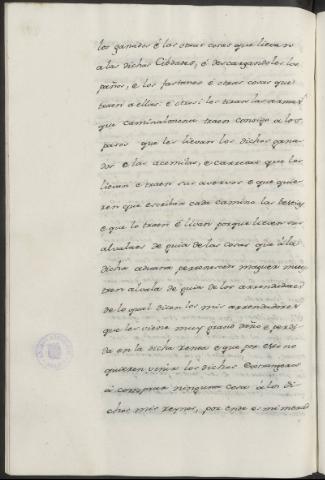 los ganados é las otras cosas que llevan
a las dichas Cibdades, é descargandoles los
paños, e los fustanes é otras cosas que
traen a ellas: e otrosi les toman las armas
que caminalmente traen consigo a los
paños que les llevan los dichos gana-
dos e las acemilas, e carretas que les
llevan e traen sus averios e que quie-
ren que escriban cada camino las bestias
e que lo traen é llevan porque lleven sus
alvalaes de guia de las cosas que á la
dicha aduana pertenecen maguer mues-
tren alvala de guia de los arrendadores
de lo qual dicen los mis arrendadores
que les viene muy grand daño e perdi-
da en la dicha renta e que por esto no
quieren venir los dichos Estrangeros
á comprar ninguna cosa á los di-
chos mis reynos, por ende es mi merced